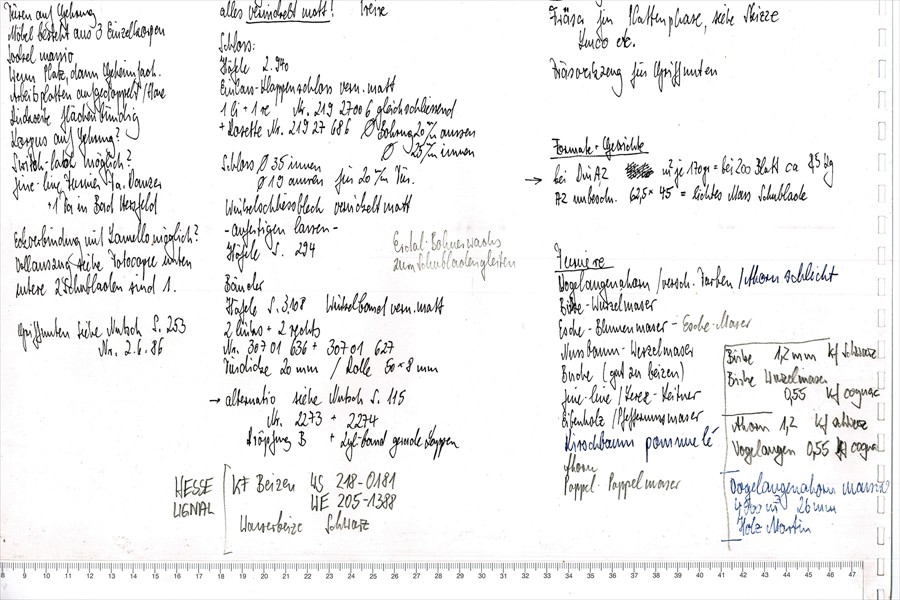 Türen auf Gehrung
Möbel besteht aus 3 Einzelkorpen
Sockel massiv
Wenn Platz, dann Geheimfach.
Arbeitsplatten aufgedoppelt /
flächenbündig
Korpus auf Gehrung?
Switch-latch möglich?
fine-line Furnier Fa. Danzer
+ 1 Fa in Bad Hersfeld
Eckverbindung mit Lamello möglich?
Vollauszug siehe Fotocopie unten
untere 2 Schubladen sind 1.
Griffmuten siehe Nutsch S. 253
Nr. 2.6.86
alles vernickelt matt!
Schloss:
Häfele 2.940
Einlass-Klappenschloss vern. matt
1 li + 1 re Nr. 219 27006 gleichschliessend
+ Rosette Nr. 219 27 686 Ø Bohrung 20 m/m aussen
Ø 25 m/m innen
Schloss Ø 35 innen
Ø 19 aussen für 20 m/m Tür.
Winkelschliessblech vernickelt matt
- anfertigen lassen -
Häfele S. 294
Bänder
Häfele S. 3.108 Winkelband vern. matt
2 links + 2 rechts
Nr. 307 01 636 + 307 01 627
Türdicke 20 mm / Rolle 60 x 8 mm
→ alternativ siehe Nutsch S. 115
Nr. 2273 + 2274
Kröpfung B + Zyl-band gerade Lappen
Erdal-Bohnerwachs
zum Schubladengleiten
HESSE
LIGNAL
KF Beizen WS 218-0181
WE 205-1388
Wasserbeize Schwarz
Fräser für Plattenphase, siehe Skizze
etc.
Fräswerkzeug für Griffmuten
Formate + Gewichte
→ bei Din A2 m² je 170 gr = bei 200 Blatt ca 8,5 kg
A2 unbeschn. 62,5 x 45 = lichtes Mass Schublade
Furniere
Vogelaugenahorn / versch. Farben / Ahorn schlicht
Birke-Wurzelmaser
Esche-Blumenmaser - Esche-Maser
Nussbaum-Wurzelmaser
Buche (gut zu beizen)
fine-line /
Eibenholz / Pfeffermusmaser
Kirschbaum pommelé
Ahorn
Pappel-Pappelmaser
Birke 1,2 mm Kf schwarz
Birke Wurzelmaser
0,55 Kf cognac
Ahorn 1,2 Kf schwarz
Vogelaugen 0,55 Kf cognac
Vogelaugenahorn massiv
m³ 26 mm
Holz Martin
8 9 10 11 12 13 14 15 16 17 18 19 20 21 22 23 24 25 26 27 28 29 30 31 32 33 34 35 36 37 38 39 40 41 42 43 44 45 46 47